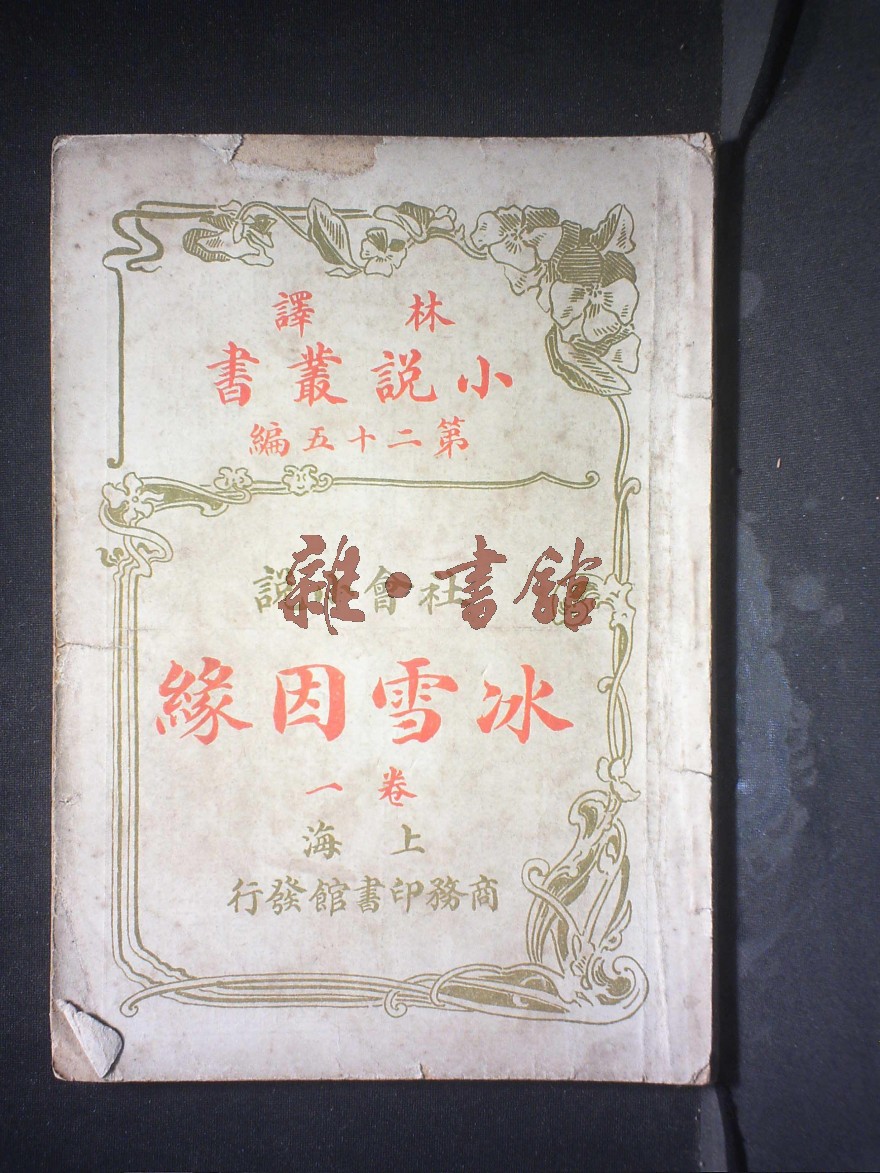 林譯
小說叢書
第二十五編
社會小說
雜·書館
冰雪因緣
卷一
上海
商務印書館發行